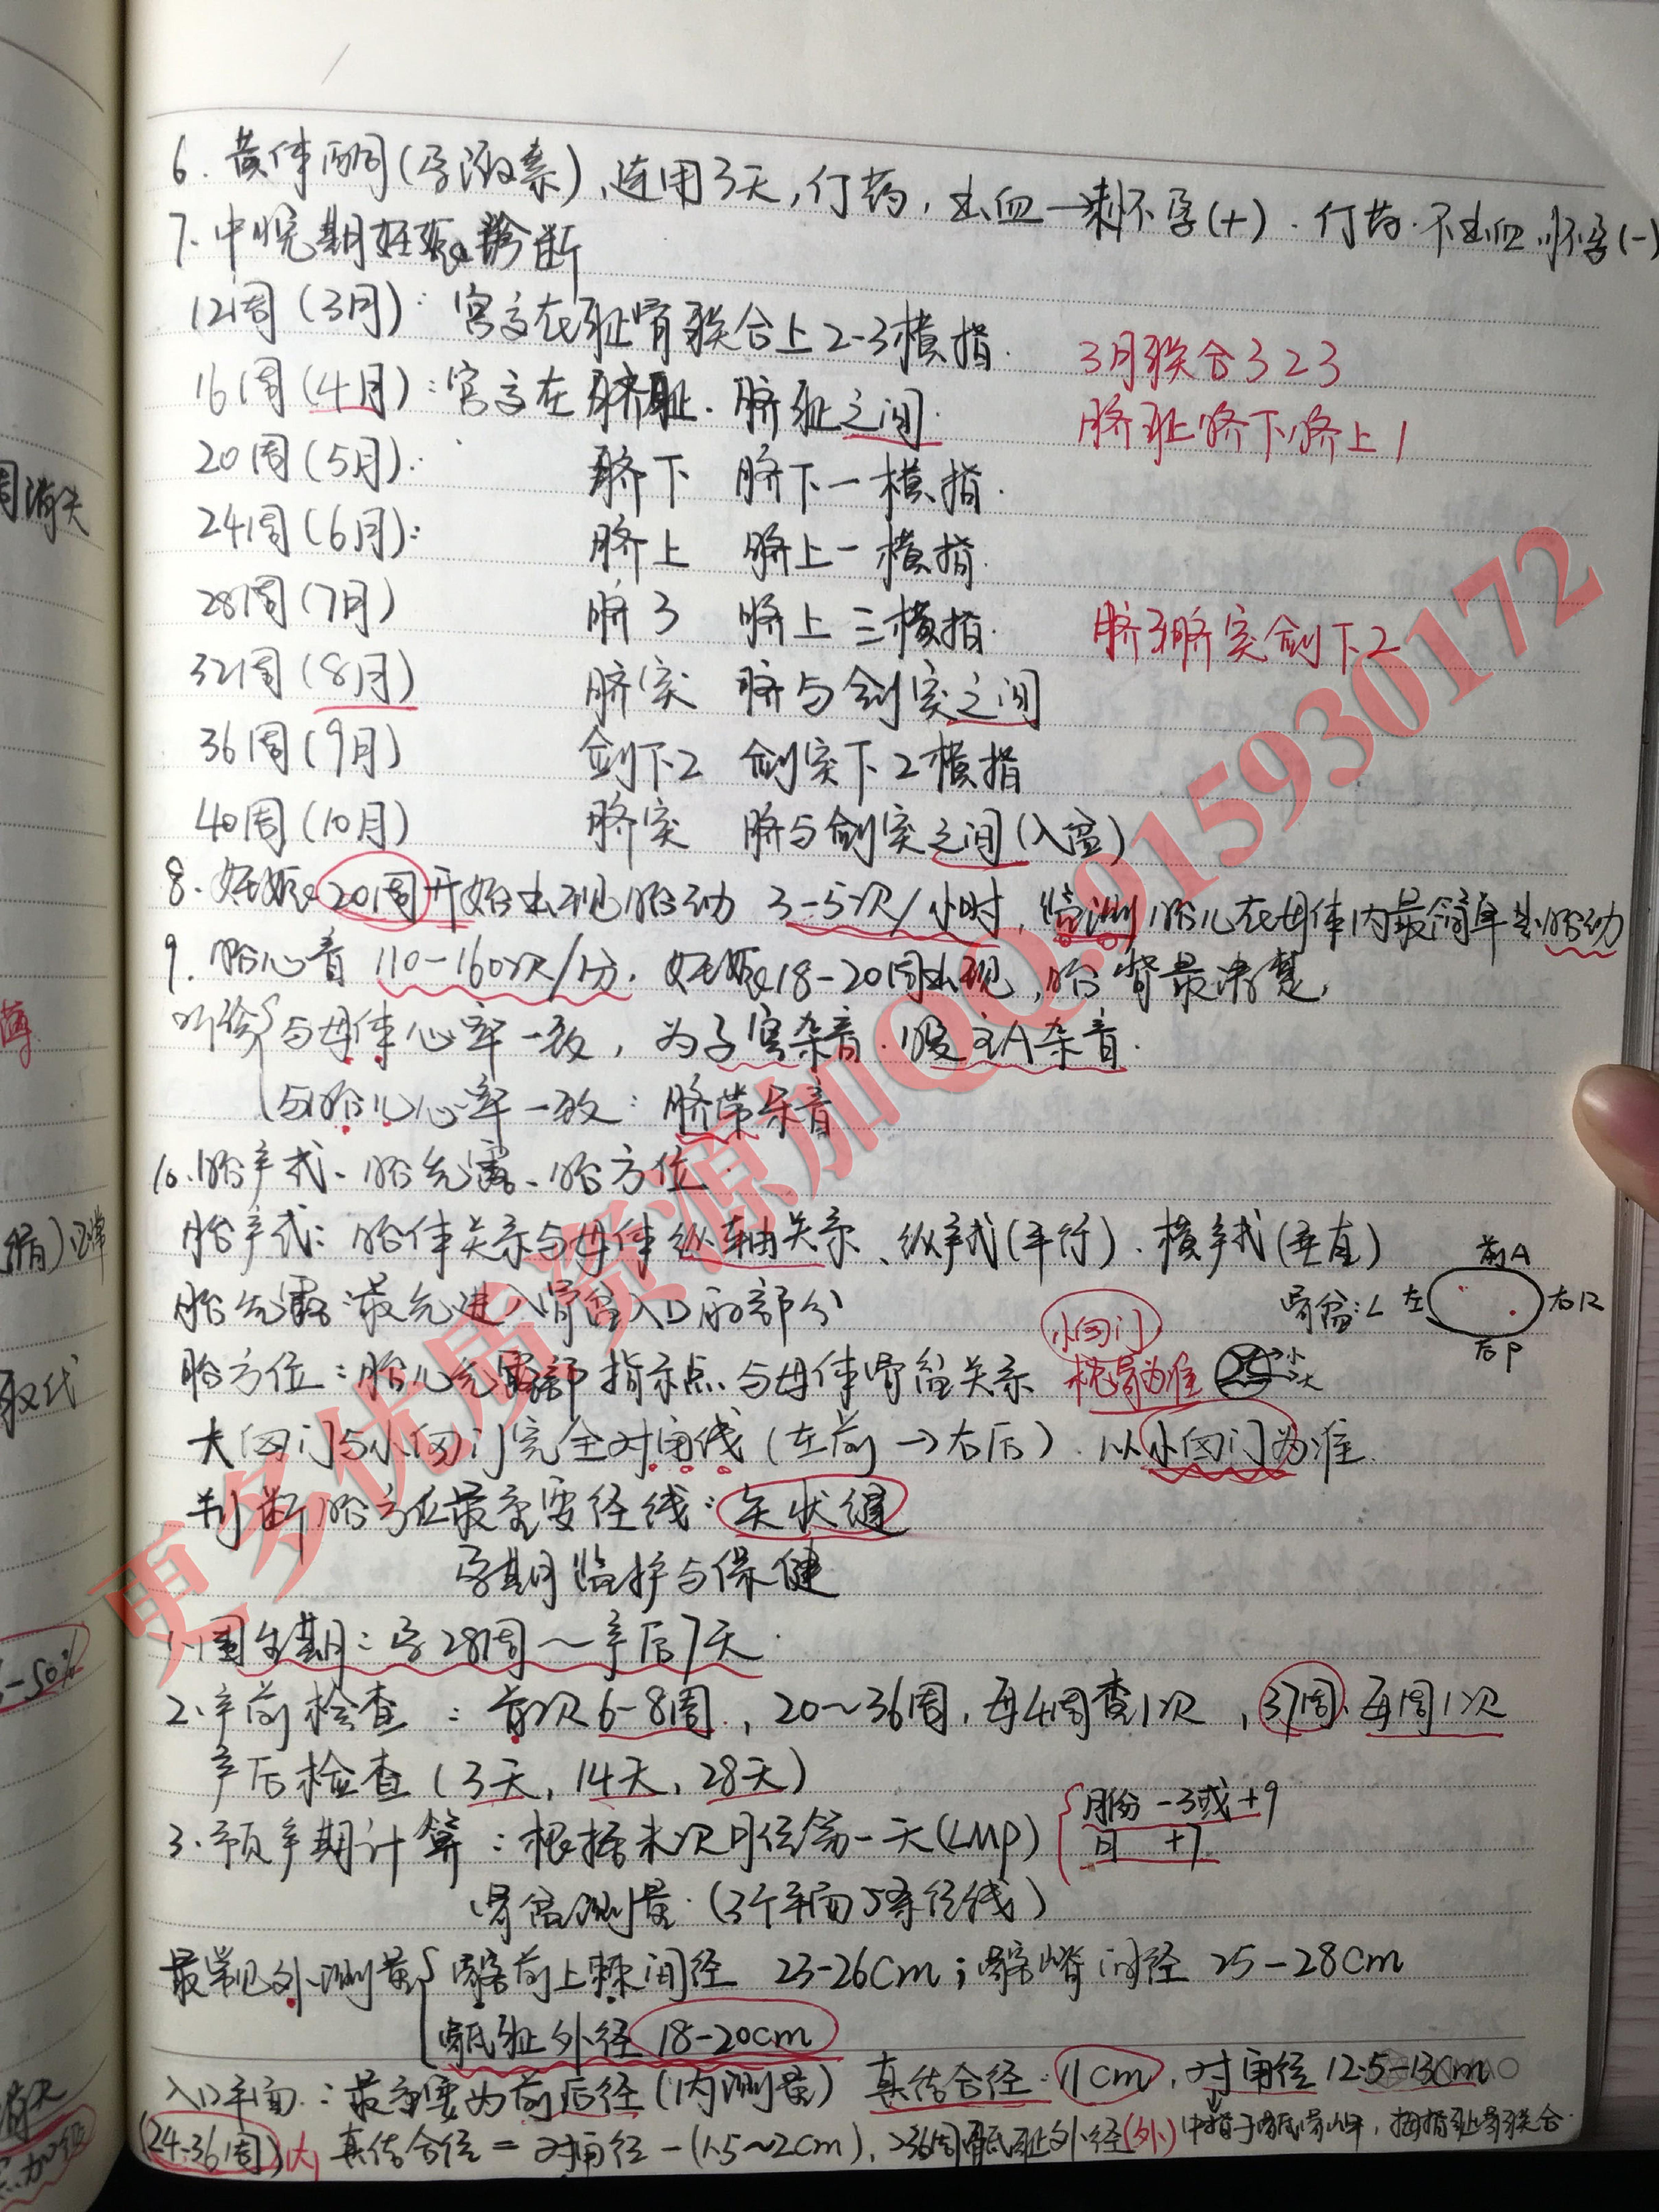 6. 黄体酮(孕激素),连用3天,停药,出血→未怀孕(+).停药.不出血.怀孕(-)
7. 中晚期妊娠诊断
12周(3月):宫高在耻骨联合上2-3横指. 3月联合323
16周(4月):宫高在脐耻.脐耻之间. 脐耻脐下脐上1
20周(5月): 脐下 脐下一横指.
24周(6月): 脐上 脐上一横指.
28周(7月) 脐3 脐上三横指. 脐3脐突剑下2
32周(8月) 脐突 脐与剑突之间
36周(9月) 剑下2 剑突下2横指
40周(10月) 脐突 脐与剑突之间(入盆)
8. 妊娠20周开始出现胎动 3-5次/小时,监测胎儿在母体内最简单是胎动
9. 胎心音 110-160次/分.妊娠18-20周出现,胎背最清楚,
听诊 与母体心率一致,为子宫杂音.腹主A杂音.
与胎儿心率一致:脐带杂音
10.胎产式、胎先露、胎方位.
胎产式:胎体关系与母体纵轴关系、纵产式(平行).横产式(垂直)
胎先露:最先进入骨盆入口的部分 骨盆:L 左 前A 右R 后P
胎方位:胎儿先露部指示点与母体骨盆关系 小囟门 枕骨为准 小 大
大囟门与小囟门完全对角线(左前→右后).以小囟门为准.
判断胎方位最重要径线:矢状缝
孕期监护与保健
1.围生期:孕28周~产后7天.
2.产前检查:首次6-8周,20~36周,每4周查1次,37周.每周1次
产后检查(3天,14天,28天)
3.预产期计算:根据末次月经第一天(LMP) 月份-3或+9
日 +7
骨盆测量.(3个平面5条径线)
最常见外测量 髂前上棘间径 23-26cm;髂嵴间径 25-28cm
骶耻外径 18-20cm
入口平面:最重要为前后径(内测量) 真结合径:11cm,对角径12.5-13cm
(24-36周)内 真结合径=对角径-(1.5~2cm),>36周骶耻外径(外) 中指于骶骨岬,拇指耻骨联合.
周消失
薄
病)正常
取代
-50%
消失
更多优质资源加QQ:915930172